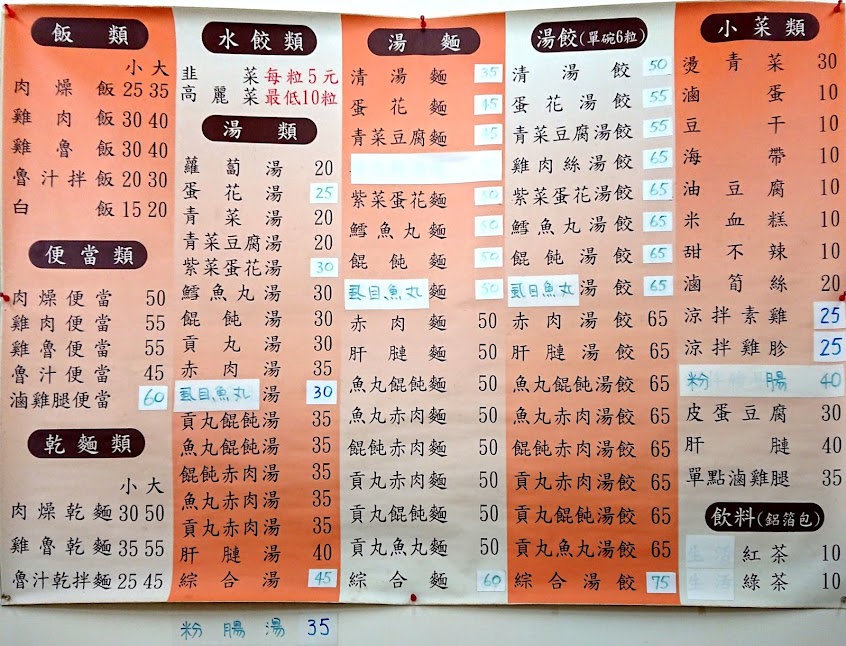 飯類
小 大
肉燥飯 25 35
雞肉飯 30 40
雞魯飯 30 40
魯汁拌飯 20 30
白飯 15 20
便當類
肉燥便當 50
雞肉便當 55
雞魯便當 55
魯汁便當 45
滷雞腿便當 60
乾麵類
小 大
肉燥乾麵 30 50
雞魯乾麵 35 55
魯汁乾拌麵 25 45
水餃類
韭菜 每粒5元
高麗菜 最低10粒
湯類
蘿蔔湯 20
蛋花湯 25
青菜湯 20
青菜豆腐湯 20
紫菜蛋花湯 30
鱈魚丸湯 30
餛飩湯 30
貢丸湯 30
赤肉湯 35
虱目魚丸湯 30
貢丸餛飩湯 35
魚丸餛飩湯 35
餛飩赤肉湯 35
魚丸赤肉湯 35
貢丸赤肉湯 35
肝膁湯 40
綜合湯 45
粉腸湯 35
湯麵
清湯麵 35
蛋花麵 45
青菜豆腐麵 45
紫菜蛋花麵 50
鱈魚丸麵 50
餛飩麵 50
虱目魚丸麵 50
赤肉麵 50
肝膁麵 50
魚丸餛飩麵 50
魚丸赤肉麵 50
餛飩赤肉麵 50
貢丸赤肉麵 50
貢丸餛飩麵 50
貢丸魚丸麵 50
綜合麵 60
湯餃(單碗6粒)
清湯餃 50
蛋花湯餃 55
青菜豆腐湯餃 55
雞肉絲湯餃 65
紫菜蛋花湯餃 65
鱈魚丸湯餃 65
餛飩湯餃 65
虱目魚丸湯餃 65
赤肉湯餃 65
肝膁湯餃 65
魚丸餛飩湯餃 65
魚丸赤肉湯餃 65
餛飩赤肉湯餃 65
貢丸赤肉湯餃 65
貢丸餛飩湯餃 65
貢丸魚丸湯餃 65
綜合湯餃 75
小菜類
燙青菜 30
滷蛋 10
豆干 10
海帶 10
油豆腐 10
米血糕 10
甜不辣 10
滷筍絲 20
涼拌素雞 25
涼拌雞胗 25
粉腸 40
皮蛋豆腐 30
肝膁 40
單點滷雞腿 35
飲料(鋁箔包)
生活紅茶 10
生活綠茶 10